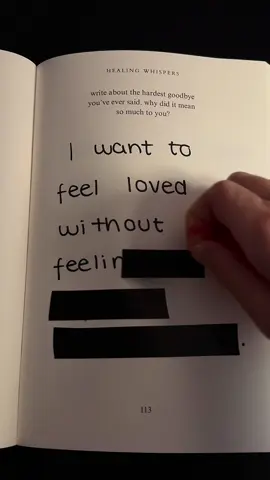 HEALING WHISPERS
write about the hardest goodbye
you've ever said. why did it mean
so much to you?
I want to
feel loved
without
feelin
.
113